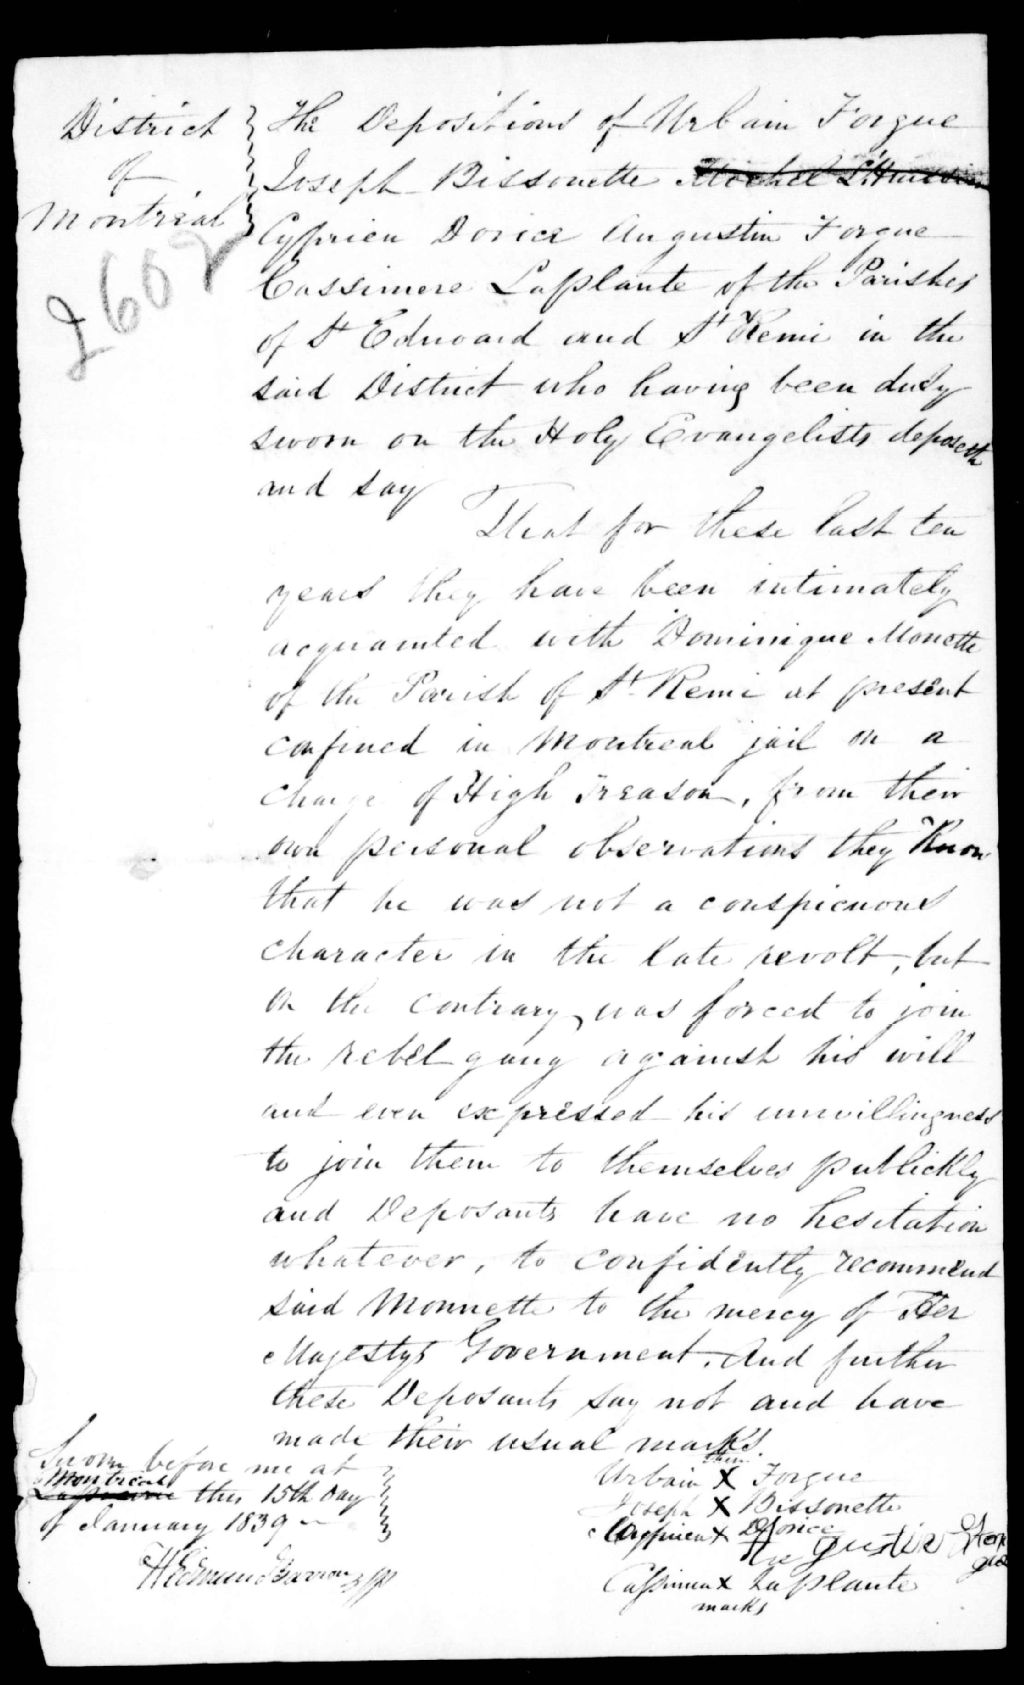 District
of
Montreal
2602
The Depositions of Urbain Forgue
Joseph Bissonette Michel
Cyprien Dorice Augustin Forgue
Cassimere Laplante of the Parishes
of St Edward and St Remi in the
said District who having been duly
sworn on the Holy Evangelists deposeth
and say
That for these last ten
years they have been intimately
acquainted with Dominique Monette
of the Parish of St Remi at present
confined in Montreal jail on a
charge of High Treason, from their
own personal observations they Know
that he was not a conspicuous
character in the late revolt, but
on the contrary, was forced to join
the rebel gang against his will
and even expressed his unwillingness
to join them to themselves publickly
and Deposants have no hesitation
whatever, to confidently recommend
said Monnette to the mercy of Her
Majesty's Government. And further
these Deposants say not and have
made their usual marks.
Sworn before me at
Montreal
Laprairie this 15th day
of January 1839
their
Urbain X Forgue
Joseph X Bissonette
Cyprien X Dorice
Laplante
marks